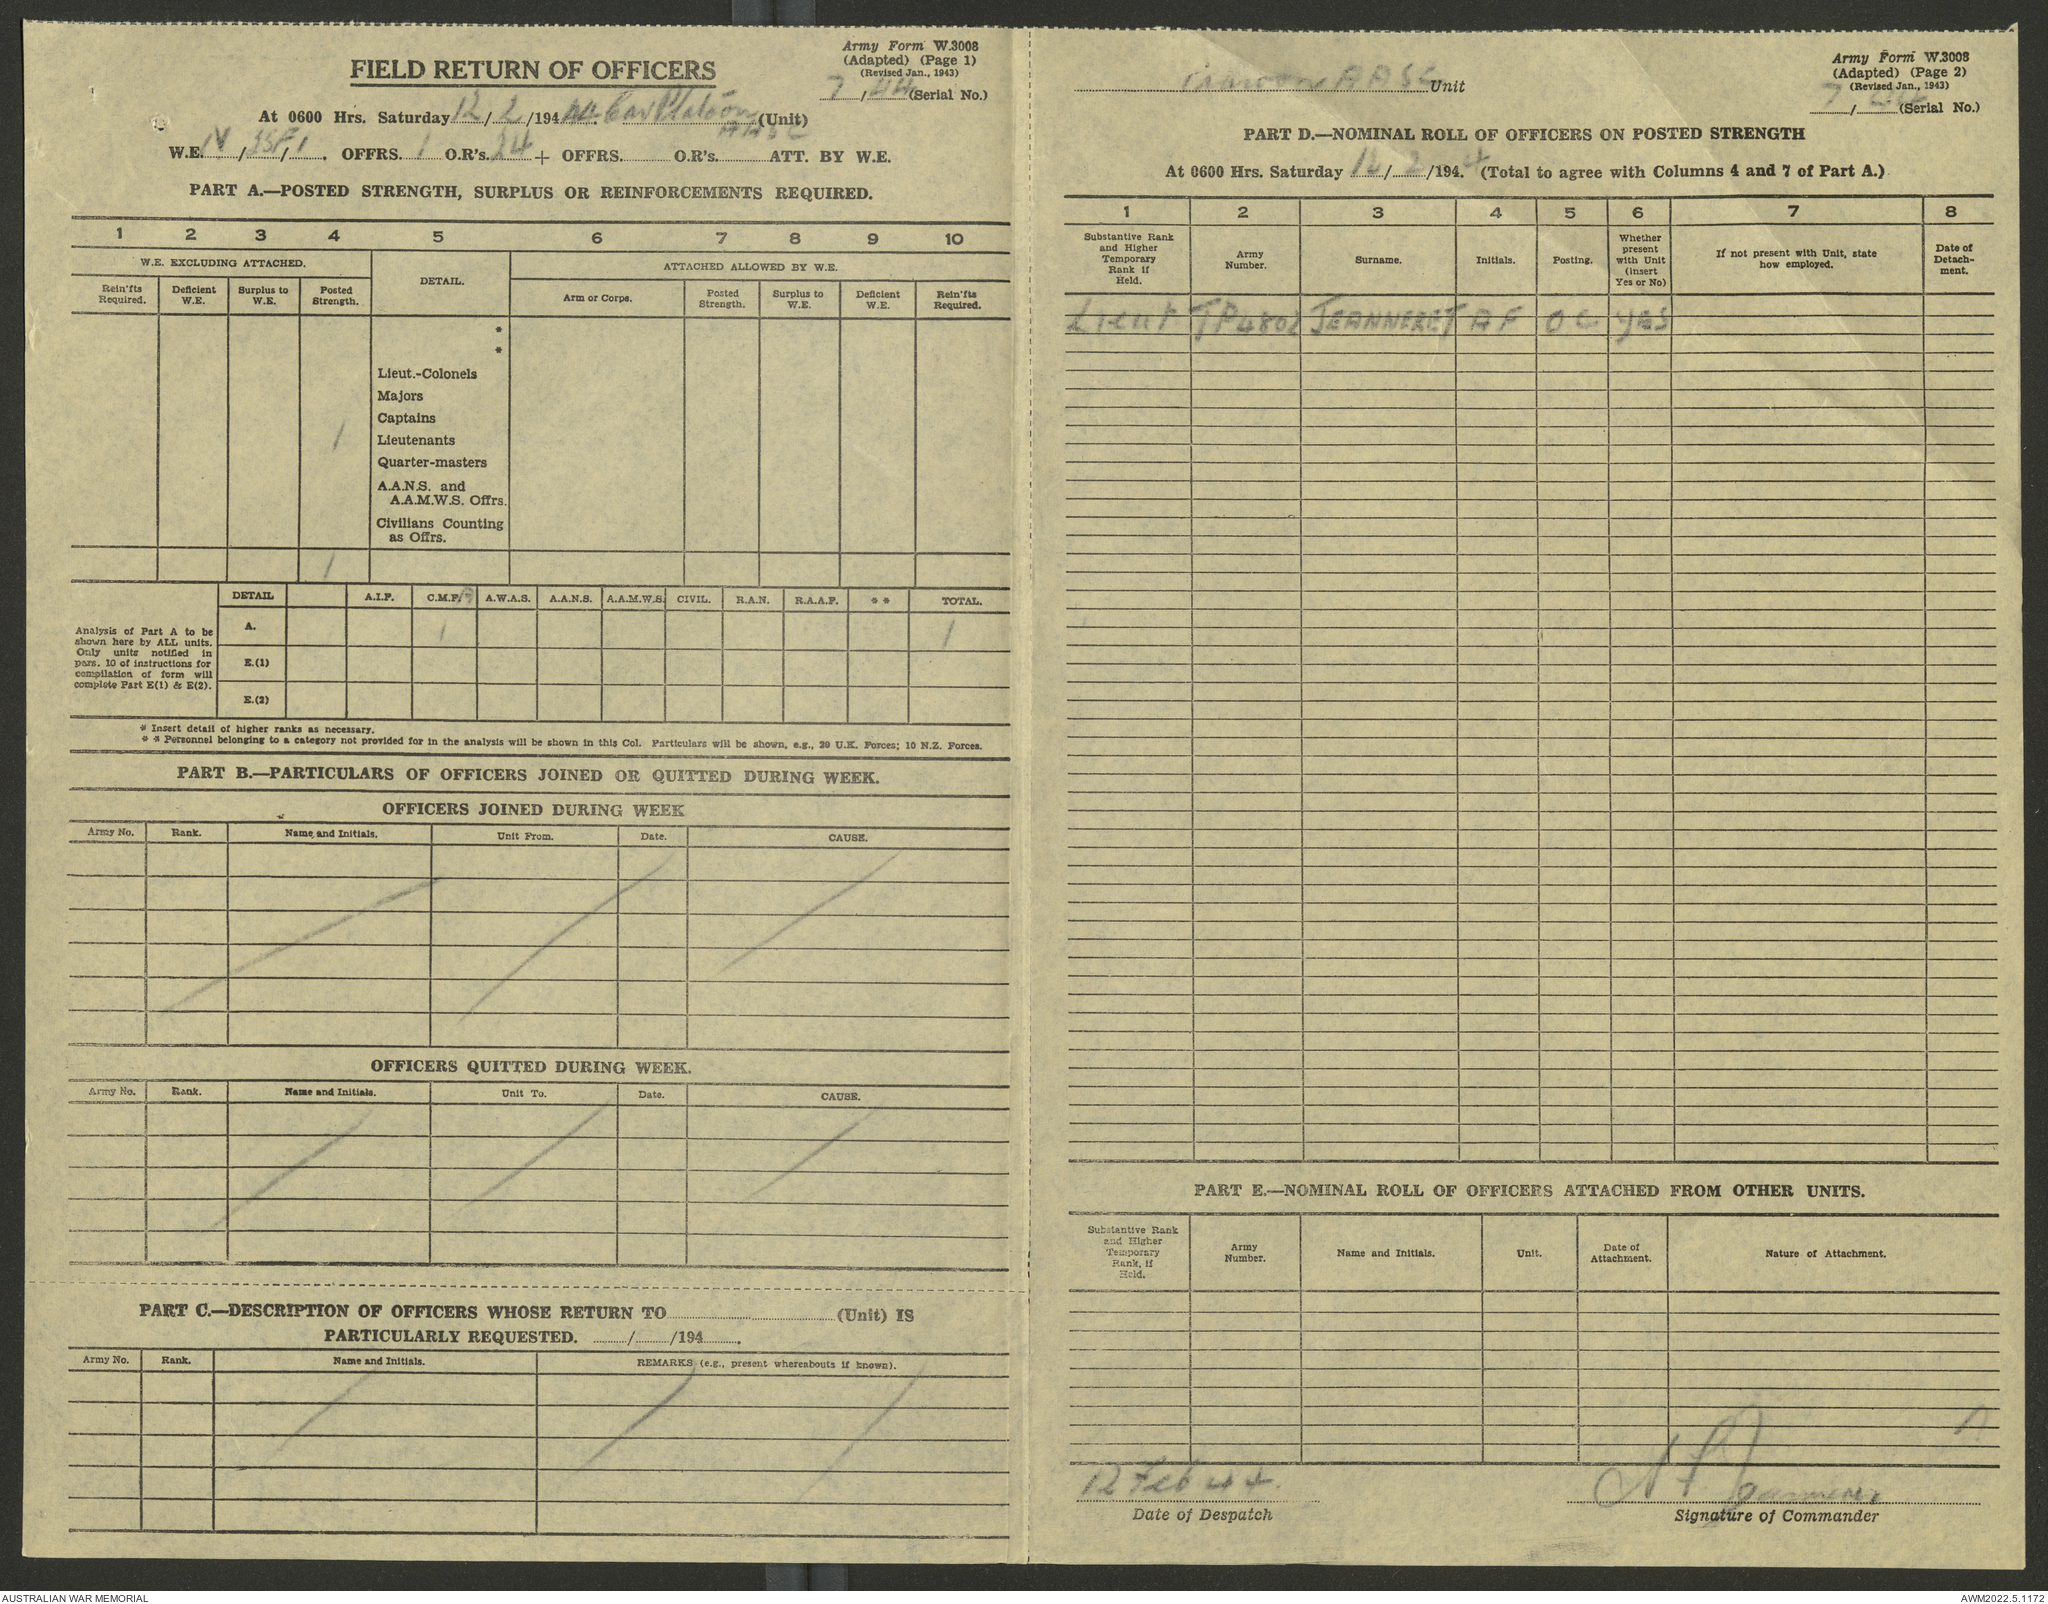 Army Form W.3008
(Adapted) (Page 1)
(Revised Jan., 1943)
7/44 (Serial No.)
FIELD RETURN OF OFFICERS
At 0600 Hrs. Saturday 12/2/1944. Car Platoon (Unit)
AASC
W.E. IV/ / . OFFRS. 1 O.R's. 24 + OFFRS. O.R's. ATT. BY W.E.
PART A.—POSTED STRENGTH, SURPLUS OR REINFORCEMENTS REQUIRED.
1 2 3 4 5 6 7 8 9 10
W.E. EXCLUDING ATTACHED. DETAIL. ATTACHED ALLOWED BY W.E.
Rein'fts Required. Deficient W.E. Surplus to W.E. Posted Strength. Arm or Corps. Posted Strength. Surplus to W.E. Deficient W.E. Rein'fts Required.
*
*
Lieut.-Colonels
Majors
Captains
1 Lieutenants
Quarter-masters
A.A.N.S. and
A.A.M.W.S. Offrs.
Civilians Counting
as Offrs.
1
DETAIL A.I.F. C.M.F. A.W.A.S. A.A.N.S. A.A.M.W.S. CIVIL. R.A.N. R.A.A.F. * * TOTAL.
Analysis of Part A to be
shown here by ALL units.
Only units notified in
para. 10 of instructions for
compilation of form will
complete Part E(1) & E(2).
A. 1 1
E.(1)
E.(2)
* Insert detail of higher ranks as necessary.
* * Personnel belonging to a category not provided for in the analysis will be shown in this Col. Particulars will be shown, e.g., 20 U.K. Forces; 10 N.Z. Forces.
PART B.—PARTICULARS OF OFFICERS JOINED OR QUITTED DURING WEEK.
OFFICERS JOINED DURING WEEK
Army No. Rank. Name and Initials. Unit From. Date. CAUSE.
OFFICERS QUITTED DURING WEEK.
Army No. Rank. Name and Initials. Unit To. Date. CAUSE.
PART C.—DESCRIPTION OF OFFICERS WHOSE RETURN TO (Unit) IS
PARTICULARLY REQUESTED. / /194 .
Army No. Rank. Name and Initials. REMARKS (e.g., present whereabouts if known).
Army Form W.3008
(Adapted) (Page 2)
(Revised Jan., 1943)
7/44 (Serial No.)
AASC Unit
PART D.—NOMINAL ROLL OF OFFICERS ON POSTED STRENGTH
At 0600 Hrs. Saturday 12/2/1944 (Total to agree with Columns 4 and 7 of Part A.)
1 2 3 4 5 6 7 8
Substantive Rank and Higher Temporary Rank if Held. Army Number. Surname. Initials. Posting. Whether present with Unit (insert Yes or No) If not present with Unit, state how employed. Date of Detach-ment.
Lieut TP4802 JEANNERET AF OC YES
PART E.—NOMINAL ROLL OF OFFICERS ATTACHED FROM OTHER UNITS.
Substantive Rank and Higher Temporary Rank, if Held. Army Number. Name and Initials. Unit. Date of Attachment. Nature of Attachment.
12 Feb 44.
Date of Despatch
Signature of Commander
AUSTRALIAN WAR MEMORIAL
AWM2022.5.1172